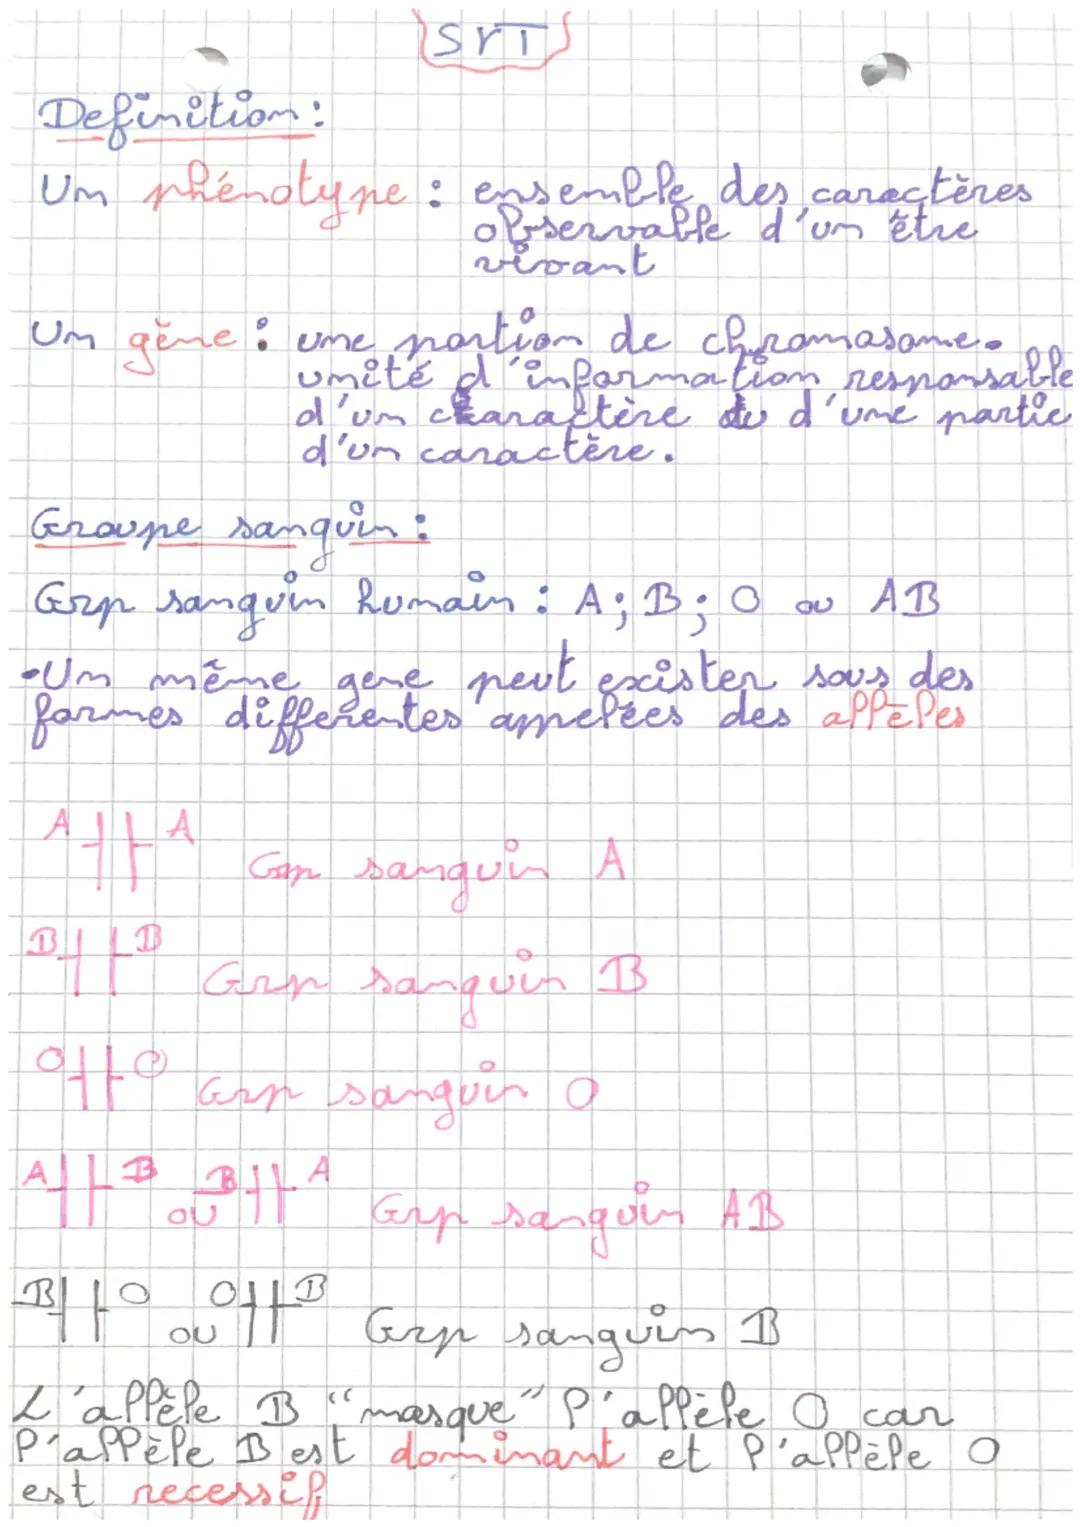 SVT
Definition :
Un phénotype : ensemble des caractères
observable d'un être
vivant
Un gène : une portion de chromosome.
unité d'information responsable
d'un charactère ou d'une partie
d'un caractère.
Groupe sanguin :
Grp sanguin humain : A ; B ; O ou AB
• Un même gene peut exister sous des
formes differentes appelées des allèles
A A Grp sanguin A
B B Grp sanguin B
O O Grp sanguin O
A B ou B A Grp sanguin AB
B O ou O B Grp sanguin B
L'allèle B "masque" l'allèle O car
l'allèle B est dominant et l'allèle O
est recessif